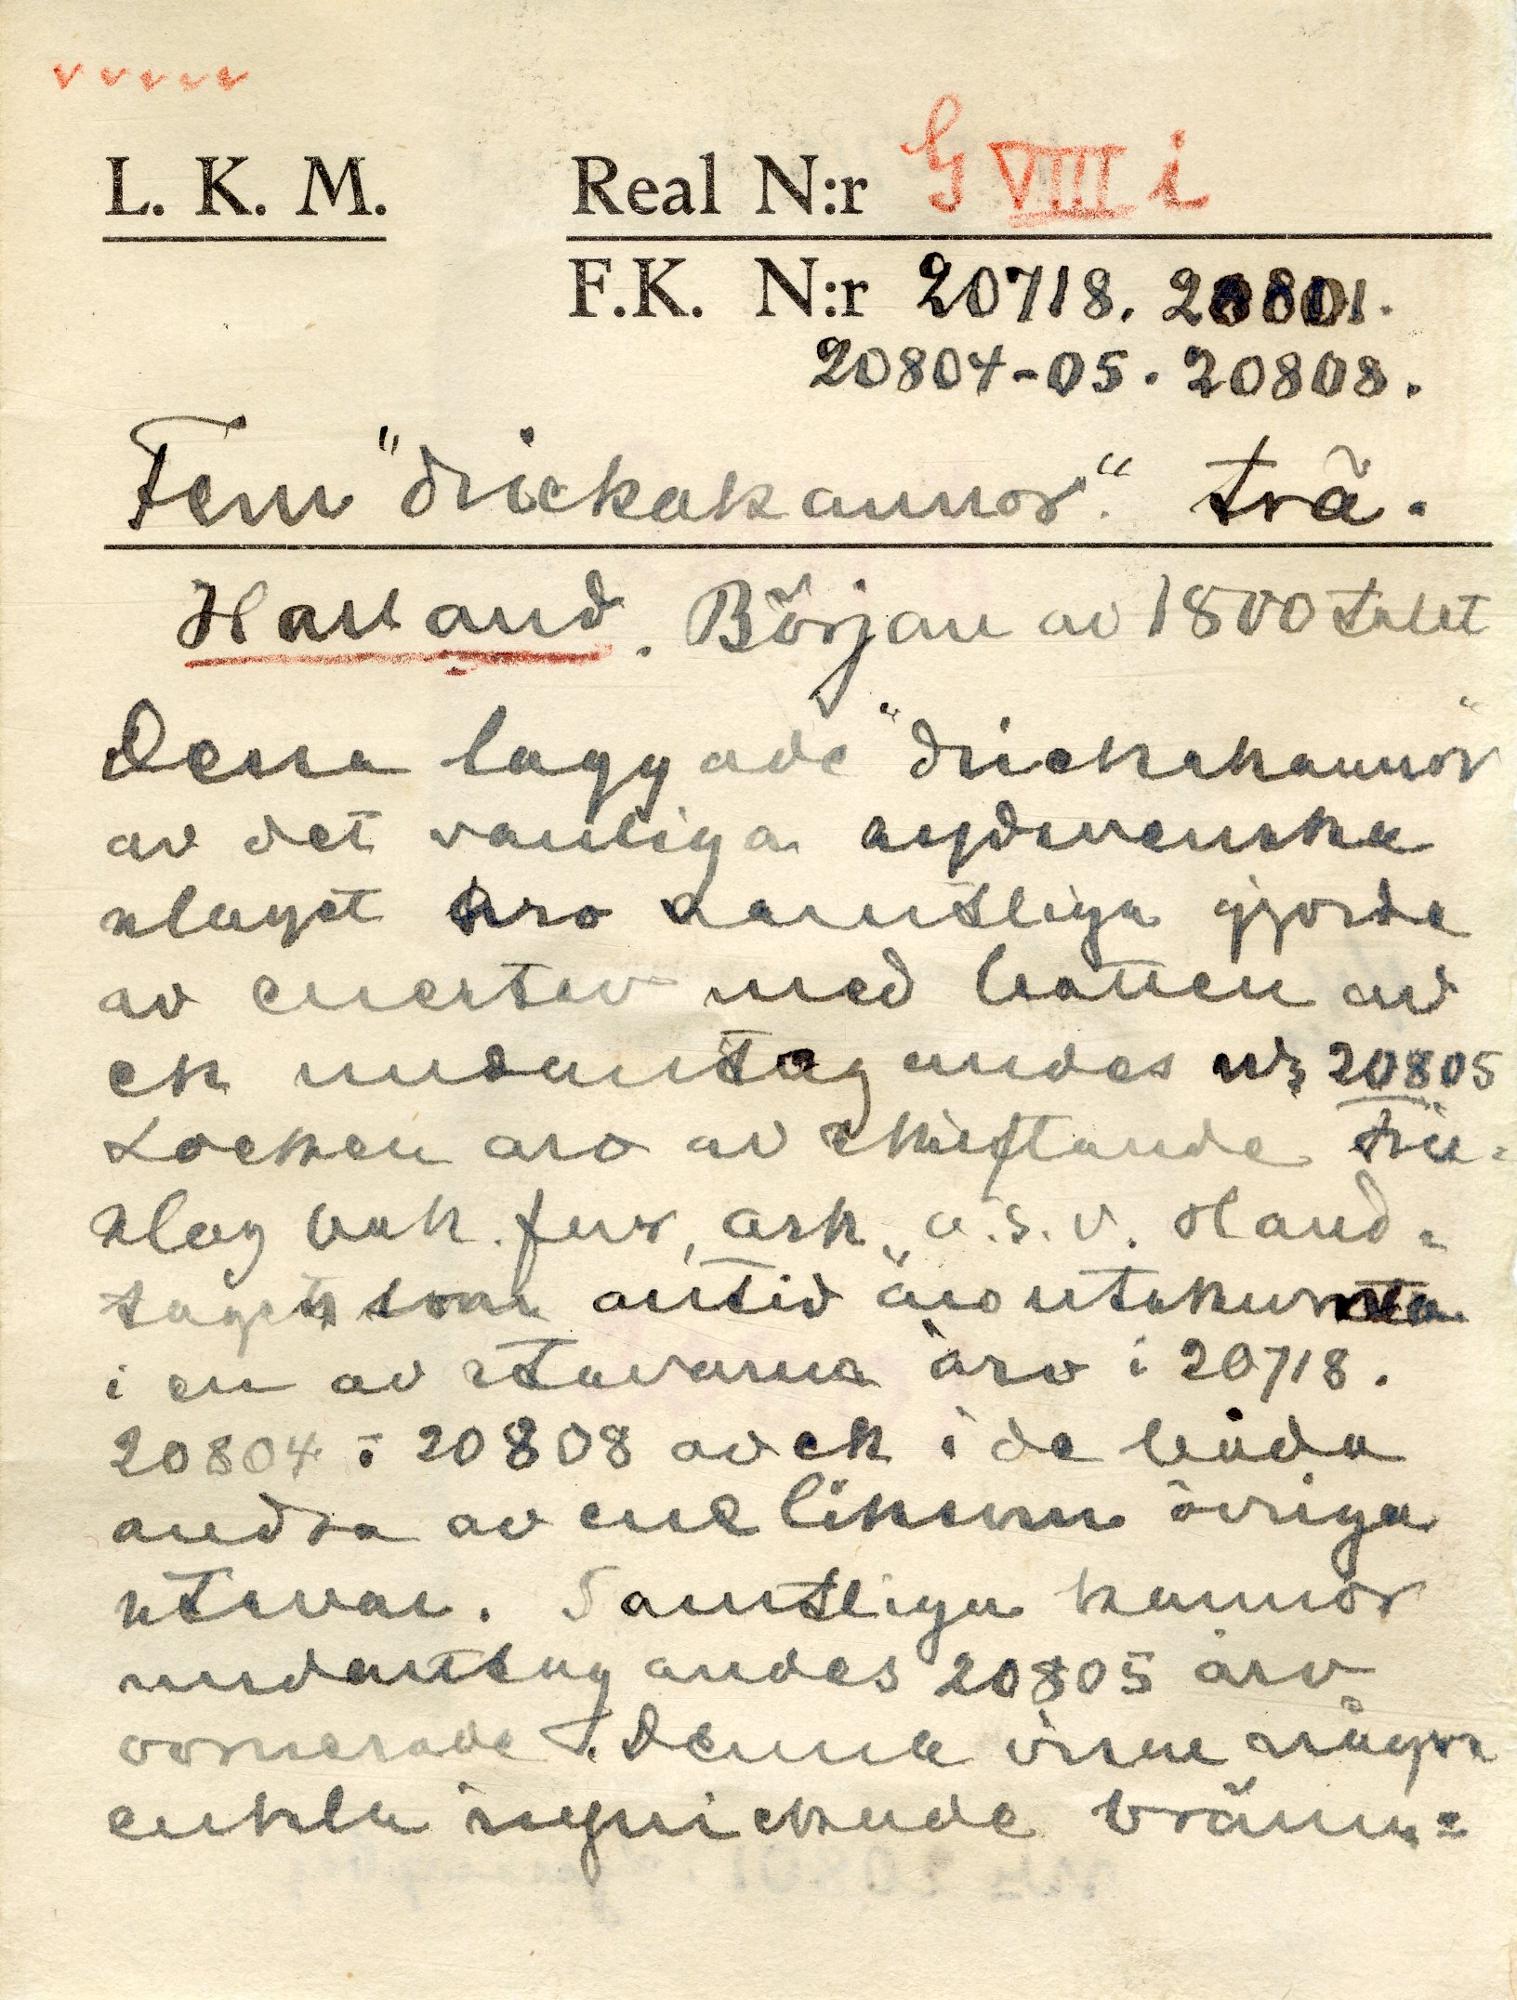 L. K. M. Real N:r G VIII i
F.K. N:r 20718. 20801.
20804-05. 20808.
Fem "drickakannor". trä.
Halland. Början av 1800 talet
Dessa laggade "drickakannor"
av det vanliga sydsvenska
slaget äro samtliga gjorda
av enestav med botten av
ek undantagandes Nr 20805
Locken äro av skiftande trä=
slag bok. fur, ask, o.s.v. Hand=
tagen som altid äro utskurna
i en av stavarna äro i 20718.
20804 i 20808 av ek i de båda
andra av ene liksom övriga
stavar. Samtliga kannor
undantagandes 20805 äro
ornerade. Denna visar några
enkla inginekade bränn=